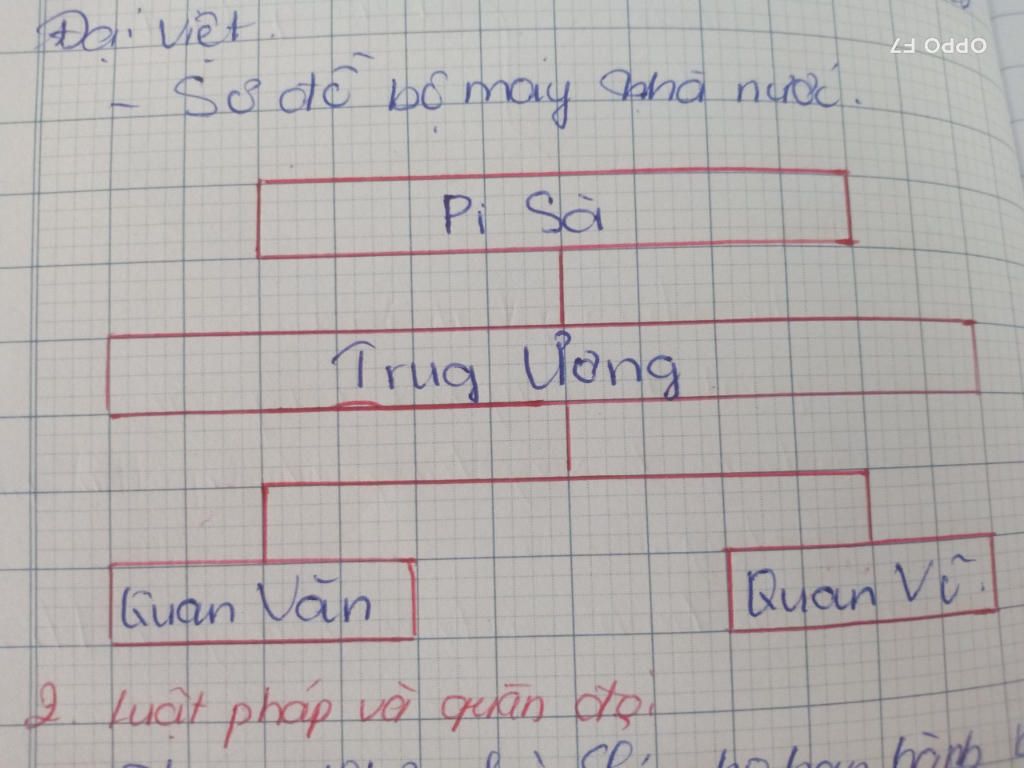 Đại Việt.
OPPO F7
- Sơ đồ bộ máy nhà nước.
Pi Sà
Trug Ương
Quan Văn
Quan Vũ.
2. Luật pháp và quân đội
ban hành